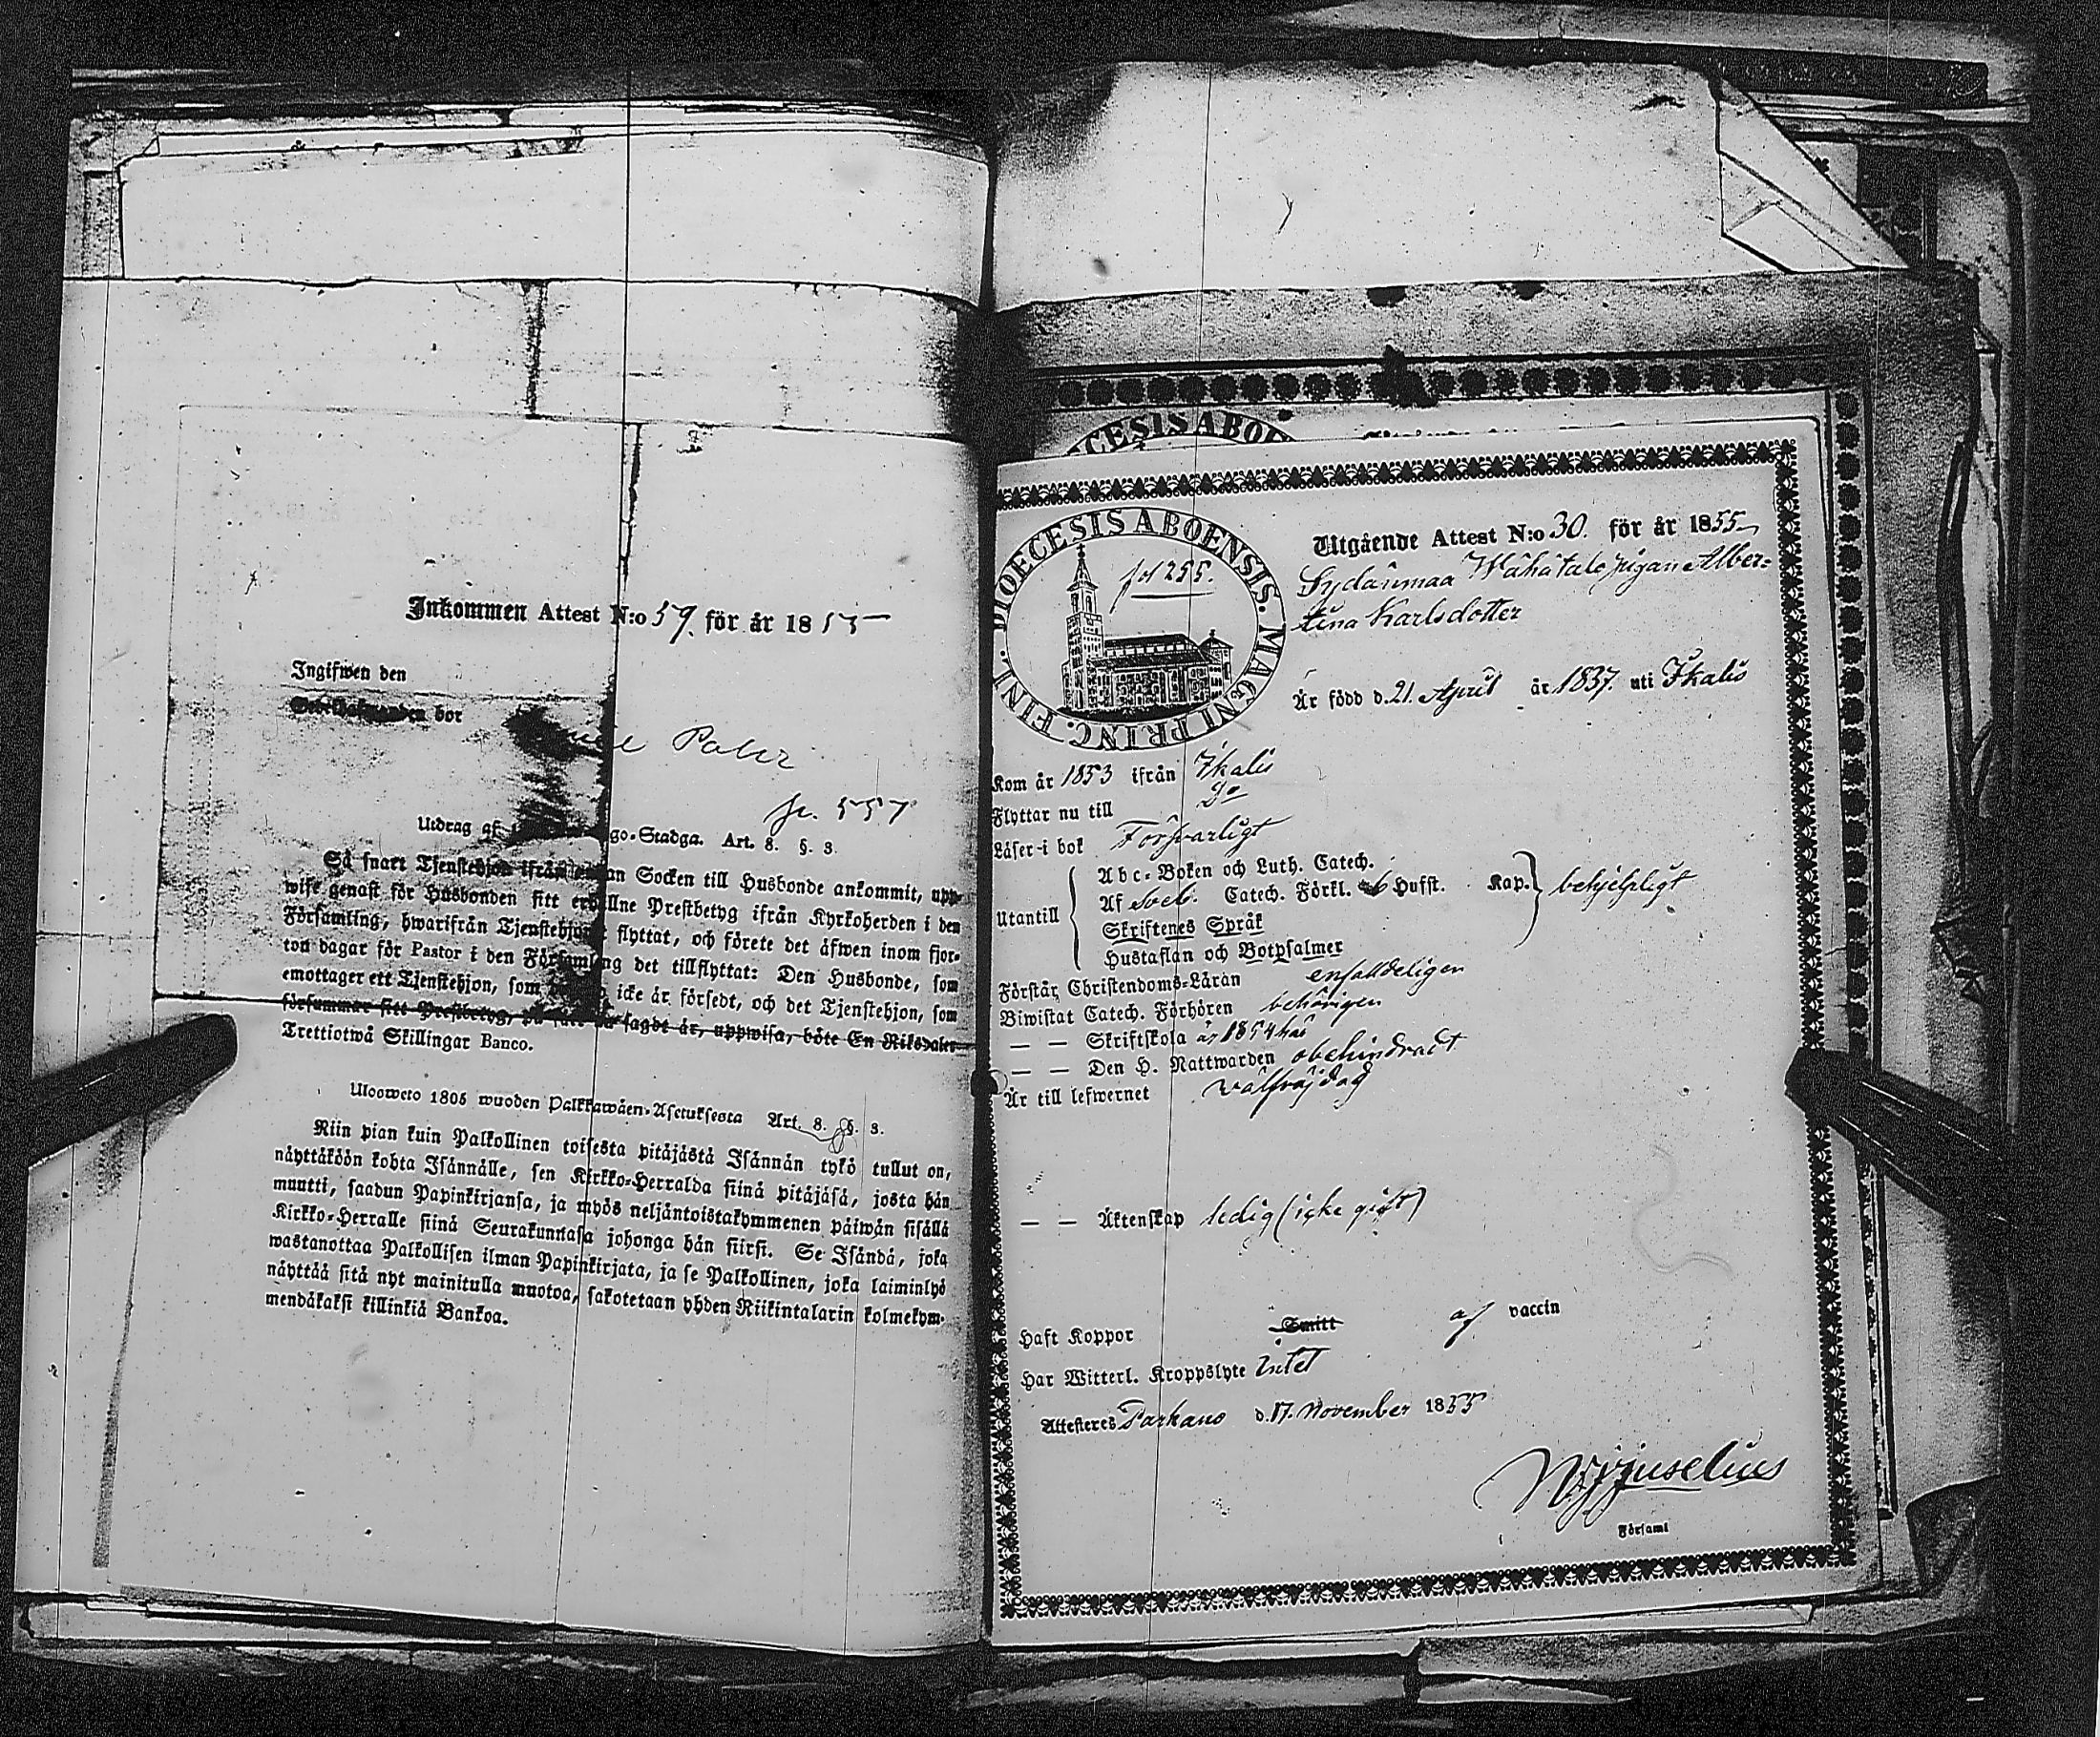 Inkommen Attest N:o 59. för år 1855
Ingifwen den
bor
fr. 557
Utdrag af go-Stadga. Art. 8. §. 3.
Så snart Tjenstehjon ifrån an Socken till Husbonde ankommit, upp-
wise genast för Husbonden sitt erhållne Prestbetyg ifrån Kyrkoherden i den
Församling, hwarifrån Tjenstehjonet flyttat, och förete det äfwen inom fjor-
ton dagar för Pastor i den Församling det tillflyttat: Den Husbonde, som
emottager ett Tjenstehjon, som icke är försedt, och det Tjenstehjon, som
försummar sitt Prestbetyg, på sätt sagdt är, uppwisa, böte En Riksdaler
Trettiotwå Skillingar Banco.
Ulosweto 1805 wuoden Palkkawäen-Asetuksesta Art. 8. §. 3.
Niin pian kuin Palkollinen toisesta pitäjästä Isännän tykö tullut on,
näyttäköön kohta Isännälle, sen Kirkko-Herralda siinä pitäjäsä, josta hän
muutti, saadun Papinkirjansa, ja myös neljäntoistakymmenen päiwän sisällä
Kirkko-Herralle siinä Seurakunnasa johonga hän siirsi. Se Isändä, joka
wastanottaa Palkollisen ilman Papinkirjata, ja se Palkollinen, joka laiminlyö
näyttää sitä nyt mainitulla muotoa, sakotetaan yhden Riikintalarin kolmekym-
mendäkaksi killinkiä Bankoa.
DIOECESIS ABOENSIS. MAGNI PRINC. FINL.
fol 255.
Utgående Attest N:o 30. för år 1855
Sydänmaa Wähätalo pigan Alber-
tina Karlsdotter
Är född d. 21. April år 1837. uti Ikalis
Kom år 1853 ifrån Ikalis
Flyttar nu till Do
Läser i bok Försvarligt
Abc-Boken och Luth. Catech.
Utantill Af Sveb. Catech. Förkl. Hufst. Kap. behjelpligt
Skriftenes Språk
Hustaflan och Botpsalmer
Förstår Christendoms-Läran enfalldeligen
Biwistat Catech. Förhören behörigen
— — Skriftskola år 1854 här
— — Den H. Nattwarden obehindradt
Är till lefwernet välfräjdad
— — Äktenskap ledig (icke gift)
Haft Koppor Smitt af vaccin
Har Witterl. Kroppslyte Intet
Attesteres Parkano d. 17. November 1855
Församl